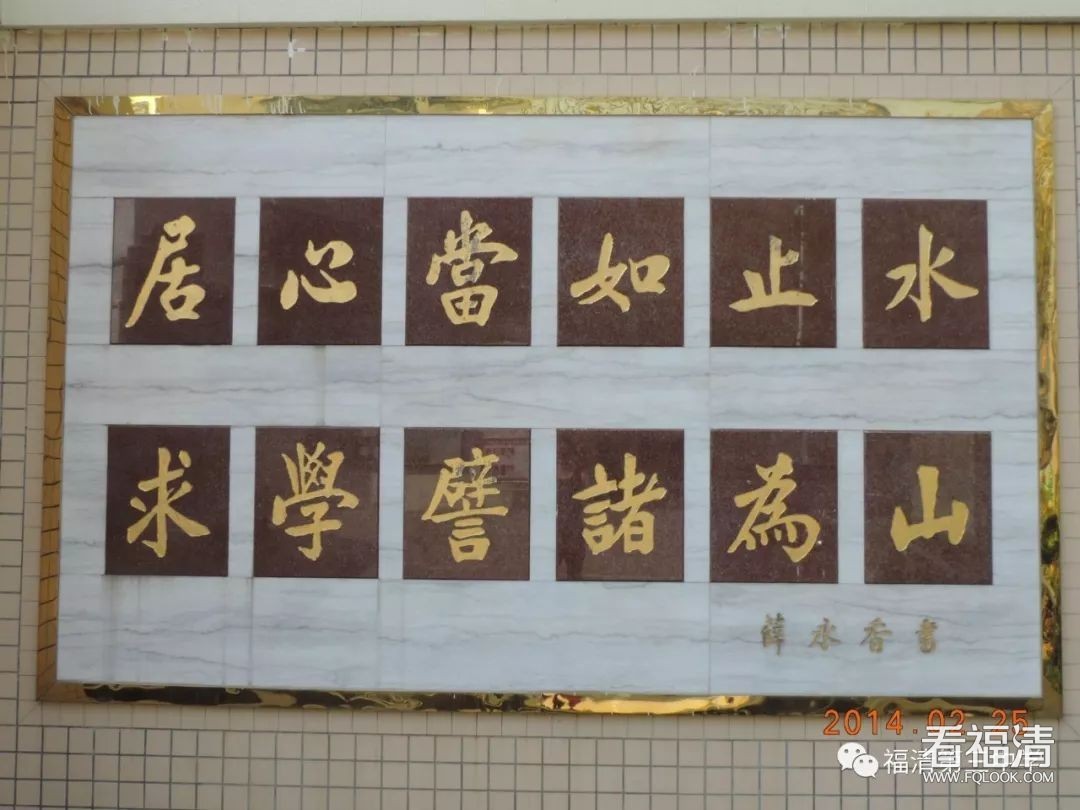 居心當如止水
求學譬諸為山
薛水香書
2014.02.25
福清
看福清
WWW.FQLOOK.COM